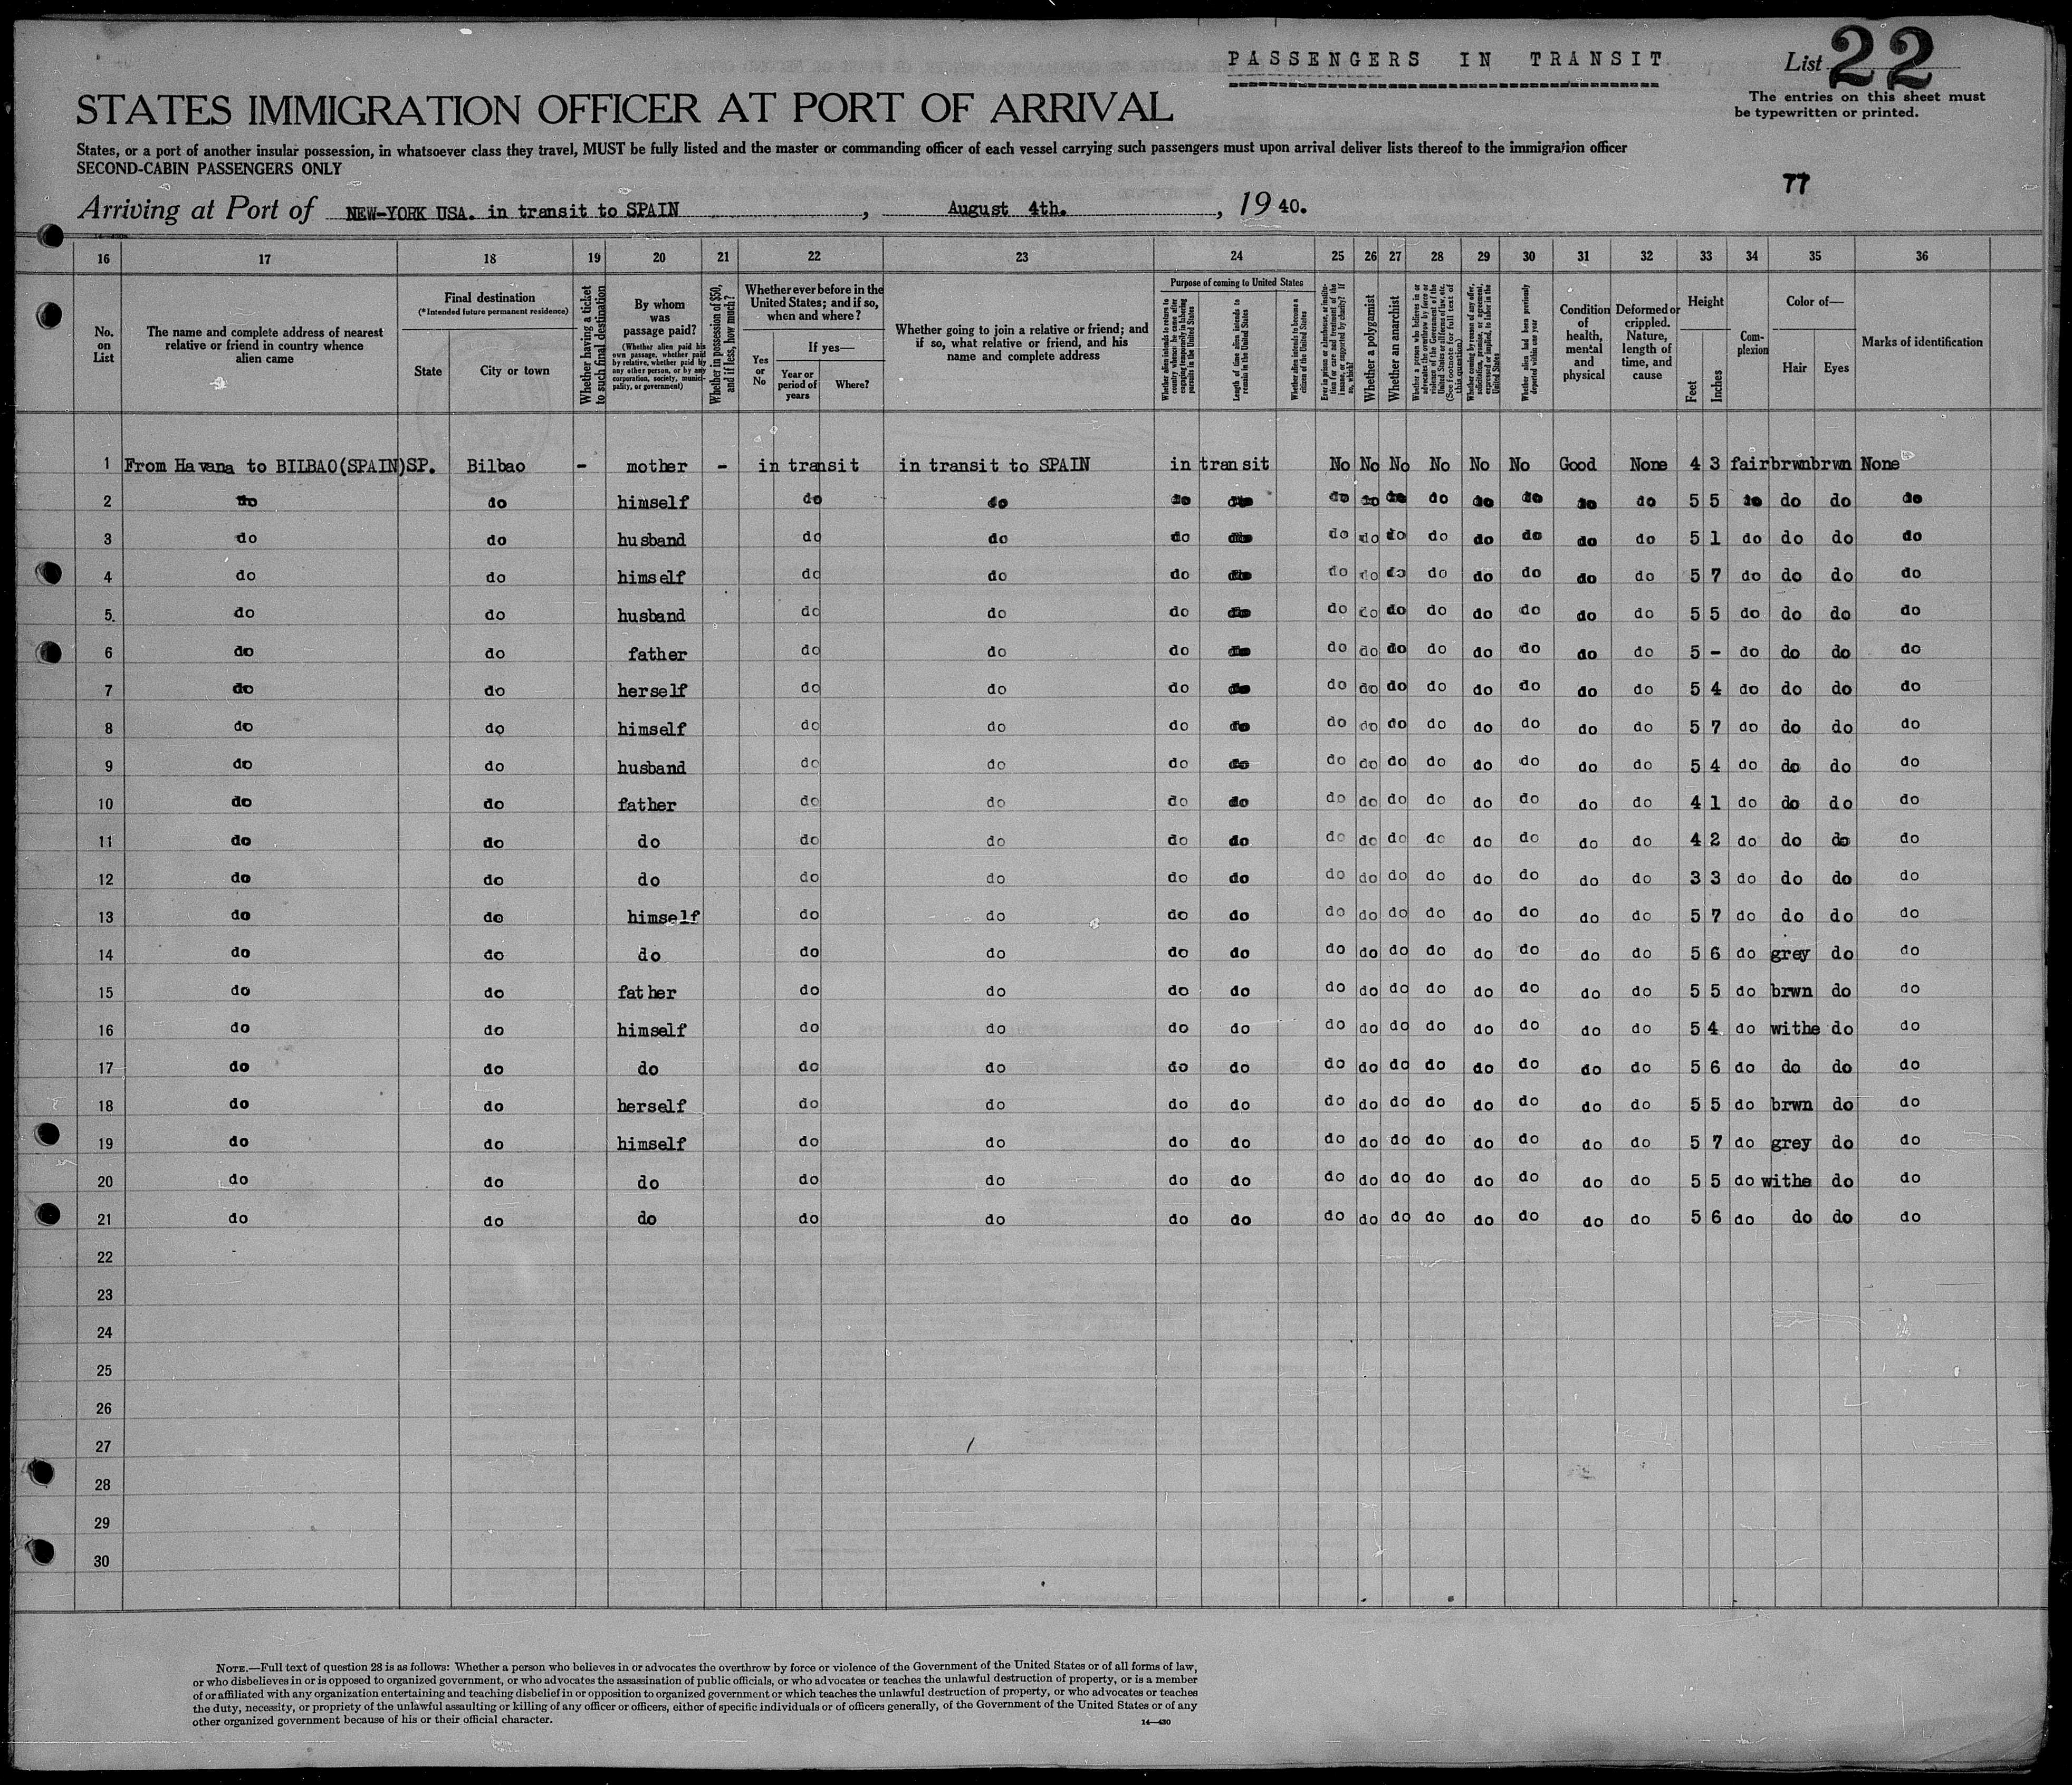 PASSENGERS IN TRANSIT
List 22
The entries on this sheet must
be typewritten or printed.
STATES IMMIGRATION OFFICER AT PORT OF ARRIVAL
States, or a port of another insular possession, in whatsoever class they travel, MUST be fully listed and the master or commanding officer of each vessel carrying such passengers must upon arrival deliver lists thereof to the immigration officer
SECOND-CABIN PASSENGERS ONLY
77
Arriving at Port of NEW-YORK USA. in transit to SPAIN, August 4th., 19 40.
16 17 18 19 20 21 22 23 24 25 26 27 28 29 30 31 32 33 34 35 36
No. on List
The name and complete address of nearest relative or friend in country whence alien came
Final destination (*Intended future permanent residence)
State
City or town
Whether having a ticket to such final destination
By whom was passage paid? (Whether alien paid his own passage, whether paid by relative, whether paid by any other person, or by any corporation, society, municipality, or government)
Whether in possession of $50, and if less, how much?
Whether ever before in the United States; and if so, when and where?
Yes or No
If yes—
Year or period of years
Where?
Whether going to join a relative or friend; and if so, what relative or friend, and his name and complete address
Purpose of coming to United States
Whether alien intends to return to country whence he came after engaging temporarily in laboring pursuits in the United States
Length of time alien intends to remain in the United States
Whether alien intends to become a citizen of the United States
Ever in prison or almshouse, or institution for care and treatment of the insane, or supported by charity? If so, which?
Whether a polygamist
Whether an anarchist
Whether a person who believes in or advocates the overthrow by force or violence of the Government of the United States or all forms of law, etc. (See footnote for full text of this question)
Whether coming by reason of any offer, solicitation, promise, or agreement, expressed or implied, to labor in the United States
Whether alien had been previously deported within one year
Condition of health, mental and physical
Deformed or crippled. Nature, length of time, and cause
Height
Feet
Inches
Complexion
Color of—
Hair
Eyes
Marks of identification
1 From Havana to BILBAO(SPAIN)SP. Bilbao - mother - in transit in transit to SPAIN in transit No No No No No No Good None 4 3 fair brwn brwn None
2 do do himself do do do do do do do do do do do do 5 5 do do do do
3 do do husband do do do do do do do do do do do do 5 1 do do do do
4 do do himself do do do do do do do do do do do do 5 7 do do do do
5. do do husband do do do do do do do do do do do do 5 5 do do do do
6 do do father do do do do do do do do do do do do 5 - do do do do
7 do do herself do do do do do do do do do do do do 5 4 do do do do
8 do do himself do do do do do do do do do do do do 5 7 do do do do
9 do do husband do do do do do do do do do do do do 5 4 do do do do
10 do do father do do do do do do do do do do do do 4 1 do do do do
11 do do do do do do do do do do do do do do do 4 2 do do do do
12 do do do do do do do do do do do do do do do 3 3 do do do do
13 do do himself do do do do do do do do do do do do 5 7 do do do do
14 do do do do do do do do do do do do do do do 5 6 do grey do do
15 do do father do do do do do do do do do do do do 5 5 do brwn do do
16 do do himself do do do do do do do do do do do do 5 4 do withe do do
17 do do do do do do do do do do do do do do do 5 6 do do do do
18 do do herself do do do do do do do do do do do do 5 5 do brwn do do
19 do do himself do do do do do do do do do do do do 5 7 do grey do do
20 do do do do do do do do do do do do do do do 5 5 do withe do do
21 do do do do do do do do do do do do do do do 5 6 do do do do
22
23
24
25
26
27
28
29
30
NOTE.—Full text of question 28 is as follows: Whether a person who believes in or advocates the overthrow by force or violence of the Government of the United States or of all forms of law,
or who disbelieves in or is opposed to organized government, or who advocates the assassination of public officials, or who advocates or teaches the unlawful destruction of property, or is a member
of or affiliated with any organization entertaining and teaching disbelief in or opposition to organized government or which teaches the unlawful destruction of property, or who advocates or teaches
the duty, necessity, or propriety of the unlawful assaulting or killing of any officer or officers, either of specific individuals or of officers generally, of the Government of the United States or of any
other organized government because of his or their official character.
14—430